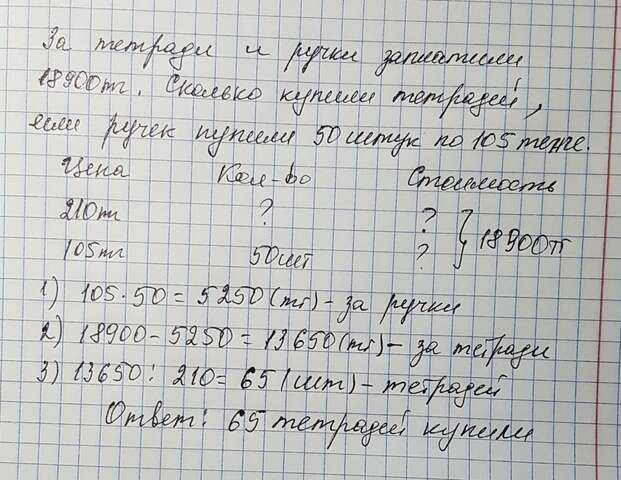 За тетради и ручки заплатили
18900тг. Сколько купили тетрадей,
если ручек купили 50 штук по 105 тенге.
Цена Кол-во Стоимость
210тг ? ?
105тг 50шт ? } 18900тг
1) 105·50 = 5250 (тг) - за ручки
2) 18900 - 5250 = 13650 (тг) - за тетради
3) 13650 : 210 = 65 (шт) - тетрадей
Ответ: 65 тетрадей купили